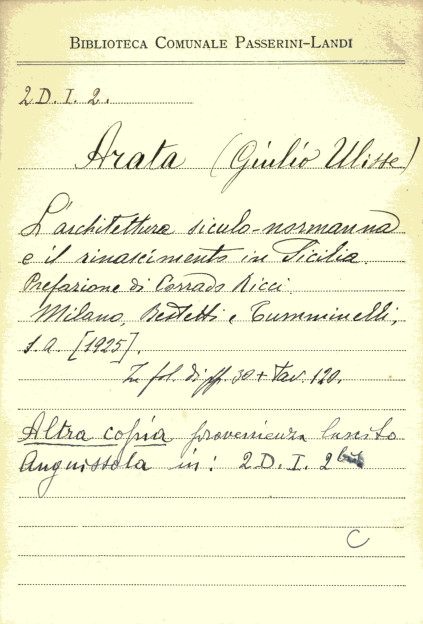 BIBLIOTECA COMUNALE PASSERINI-LANDI
2 D. I. 2.
Arata (Giulio Ulisse)
L'architettura siculo-normanna
e il rinascimento in Sicilia.
Prefazione di Corrado Ricci.
Milano, Bestetti e Tumminelli,
s. a. [1925].
In fol. di pp. 30 + tav. 120.
Altra copia provenienza lascito
Anguissola in: 2 D. I. 2 bis
C